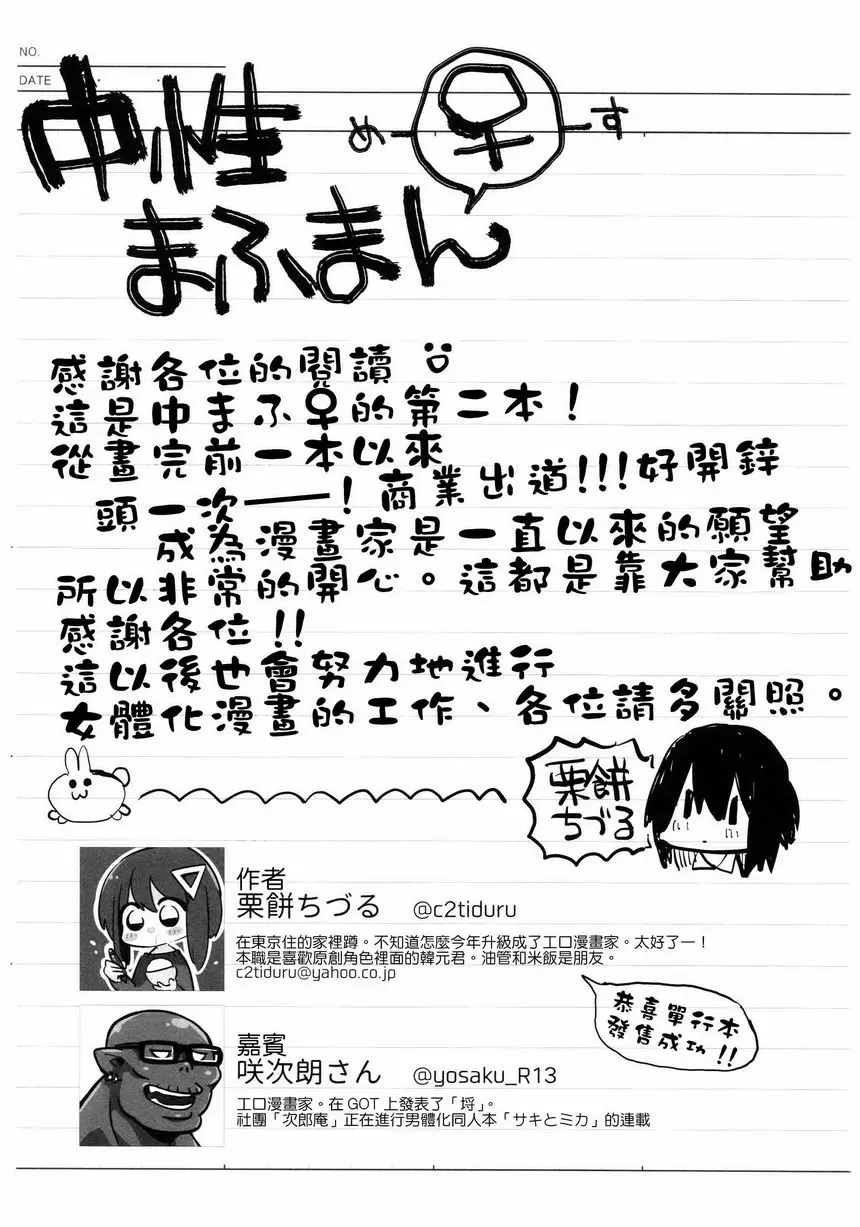 NO.
DATE
中性
め ♀ す
まふまん
感謝各位的閱讀
這是中まふ♀的第二本！
從畫完前一本以來
頭一次——！商業出道!!!好開鋅
成為漫畫家是一直以來的願望
所以非常的開心。這都是靠大家幫助
感謝各位!!
這以後也會努力地進行
女體化漫畫的工作、各位請多關照。
栗餅
ちづる
作者
栗餅ちづる @c2tiduru
在東京住的家裡蹲。不知道怎麼今年升級成了工口漫畫家。太好了ー！
本職是喜歡原創角色裡面的韓元君。油管和米飯是朋友。
c2tiduru@yahoo.co.jp
恭喜單行本
發售成功!!
嘉賓
咲次朗さん @yosaku_R13
工口漫畫家。在 GOT 上發表了「埒」。
社團「次郎庵」正在進行男體化同人本「サキとミカ」的連載